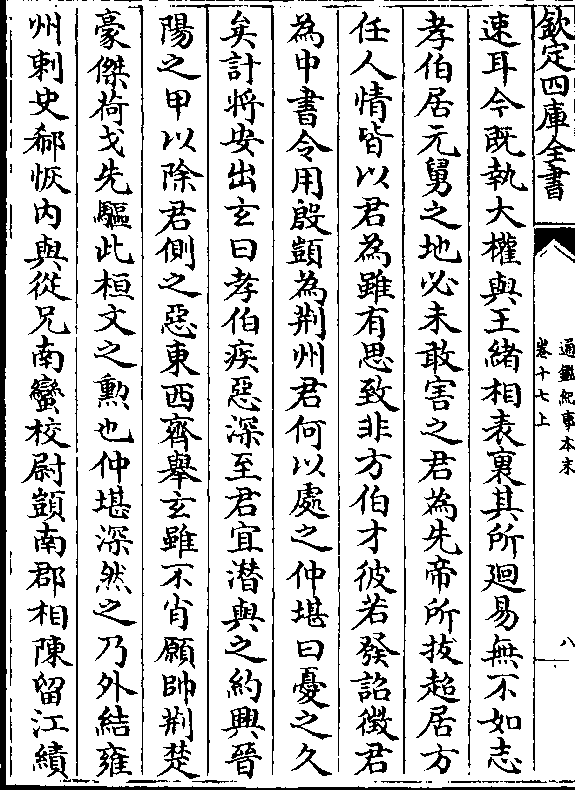 欽定四庫全書
通鑑紀事本末
卷十七上
八
速耳今既執大權與王緒相表裏其所廻易無不如志
孝伯居元舅之地必未敢害之君為先帝所拔超居方
任人情皆以君為雖有思致非方伯才彼若發詔徵君
為中書令用殷顗為荆州君何以處之仲堪曰憂之久
矣計將安出玄曰孝伯疾惡深至君宜潛與之約興晉
陽之甲以除君側之惡東西齊舉玄雖不肖願帥荆楚
豪傑荷戈先驅此桓文之勲也仲堪深然之乃外結雍
州刺史郗恢内與從兄南蠻校尉顗南郡相陳留江績